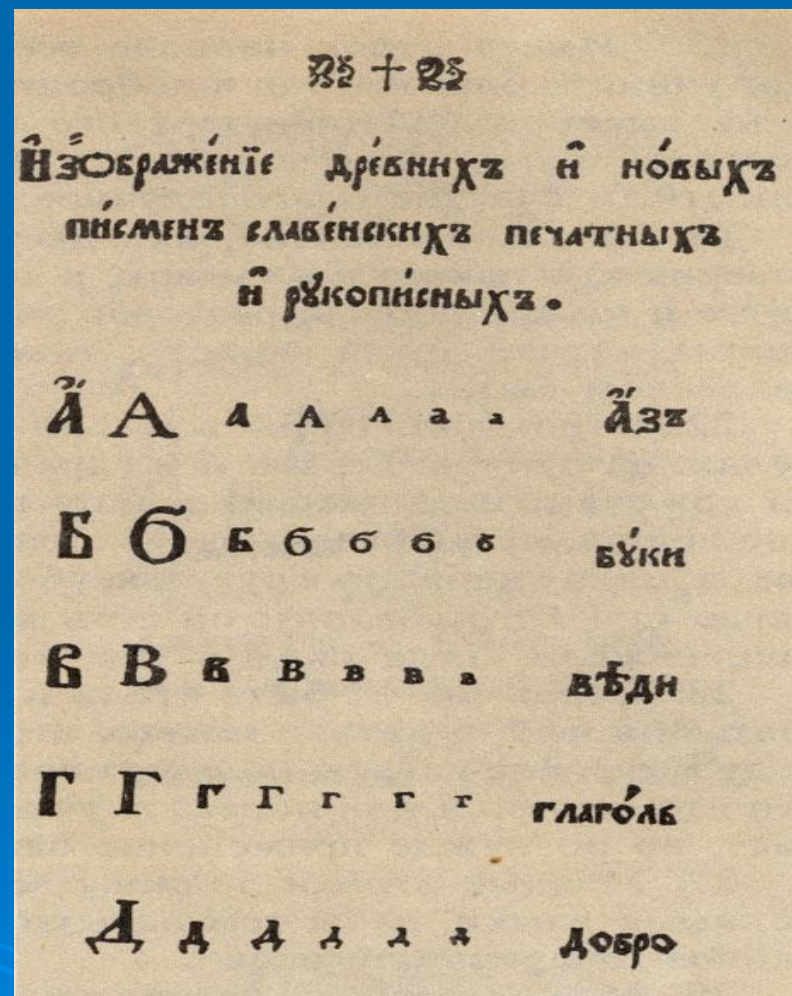 И҆зѡбраже́нїе дре́внихъ и҆ но́выхъ
пи́сменъ славе́нскихъ печатныхъ
и҆ рꙋкопи́сныхъ.
А҆́ А а А А а а А҆́зъ
Б Б б б б б б бꙋ́ки
В В в в в в в вѣди
Г Г г г г г т глаго́ль
Д д д д д д добро